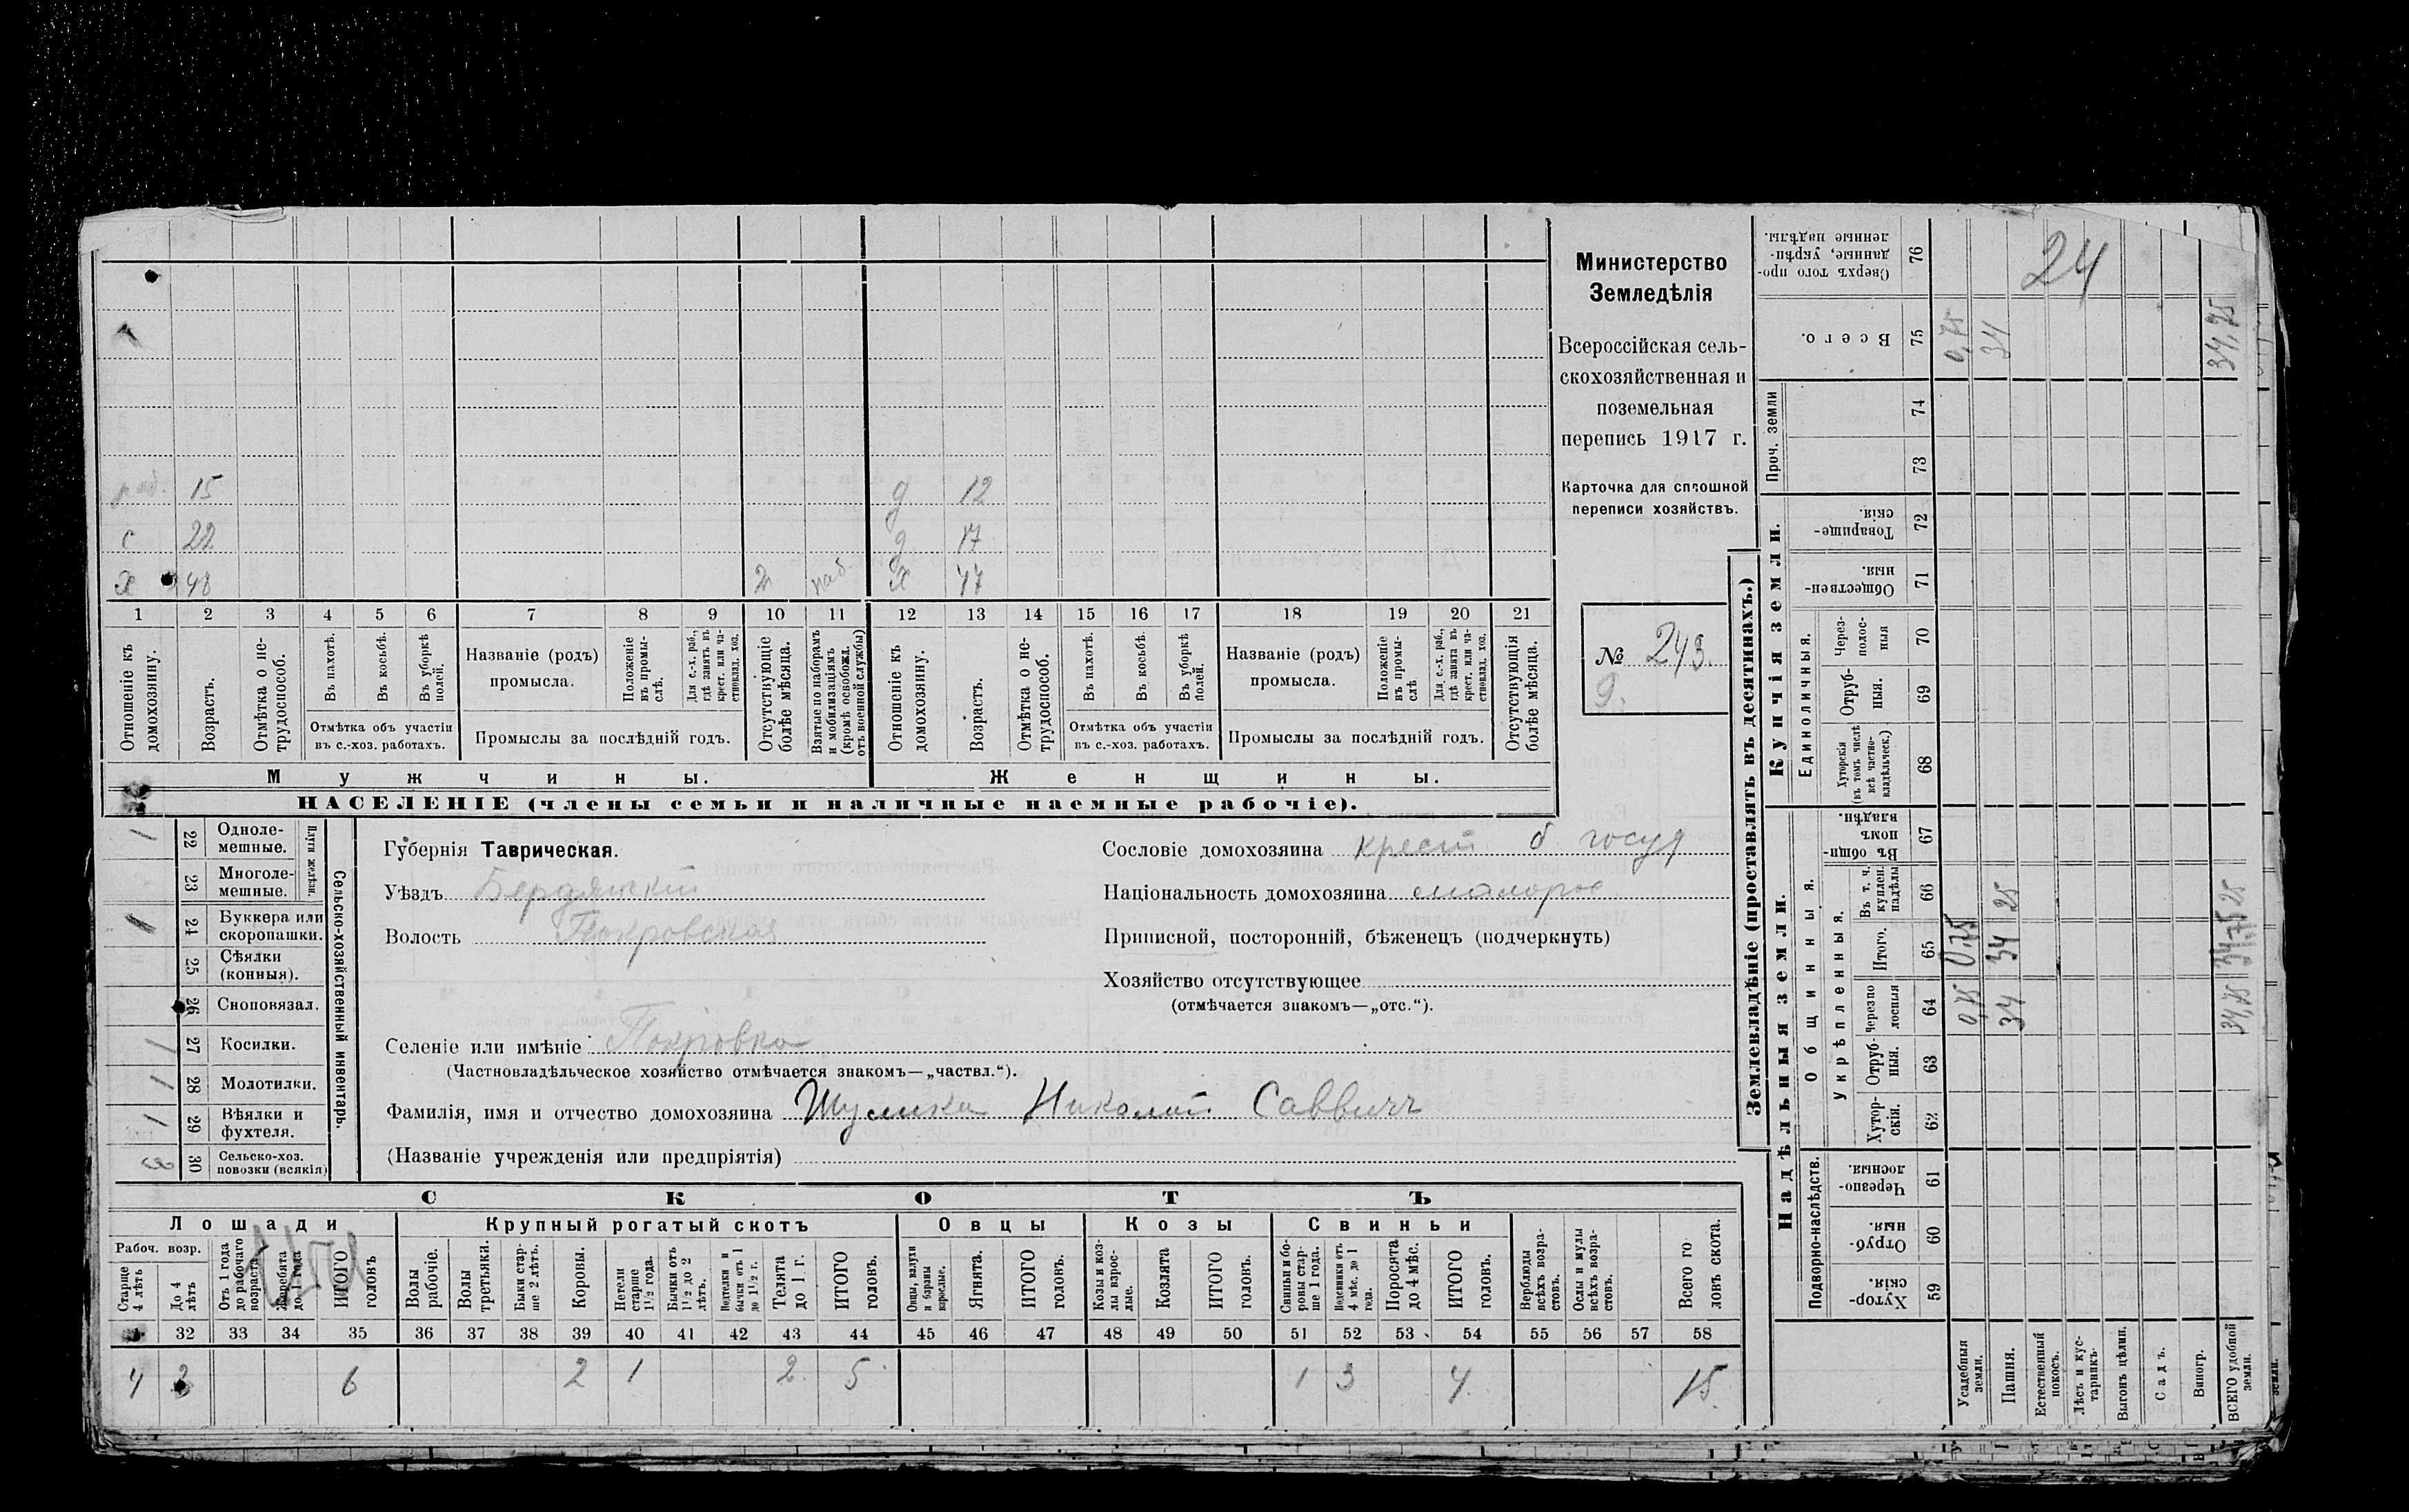 Министерство
Земледѣлія
Всероссійская сель-
скохозяйственная и
поземельная
перепись 1917 г.
Карточка для сплошной
переписи хозяйствъ.
№ 243.
9.
раб. 15 д 12
с 22 д 17
Х 48 2 раб. Х 47
1 2 3 4 5 6 7 8 9 10 11 12 13 14 15 16 17 18 19 20 21
Отношеніе къ домохозяину.
Возрастъ.
Отмѣтка о не-трудоспособ.
Въ пахотѣ.
Въ косьбѣ.
Въ уборкѣ полей.
Отмѣтка объ участіи
въ с.-хоз. работахъ.
Названіе (родъ)
промысла.
Положеніе въ промы-слѣ.
Для с.-х. раб., гдѣ занятъ въ крест. или ча-стновлад. хоз.
Промыслы за послѣдній годъ.
Отсутствующіе болѣе мѣсяца.
Взятые по наборамъ и мобилизаціямъ (кромѣ освобожд. отъ военной службы)
Отношеніе къ домохозяину.
Возрастъ.
Отмѣтка о не-трудоспособ.
Въ пахотѣ.
Въ косьбѣ.
Въ уборкѣ полей.
Отмѣтка объ участіи
въ с.-хоз. работахъ.
Названіе (родъ)
промысла.
Положеніе въ промы-слѣ
Для с.-х. раб., гдѣ занята въ крест. или ча-стновлад. хоз.
Промыслы за послѣдній годъ.
Отсутствующія болѣе мѣсяца.
Мужчины. Женщины.
НАСЕЛЕНІЕ (члены семьи и наличные наемные рабочіе).
Сельско-хозяйственный инвентарь.
Плуги желѣзн.
1 22 Одноле-мешные.
23 Многоле-мешные.
1 24 Буккера или скоропашки.
25 Сѣялки (конныя).
26 Сноповязал.
1 27 Косилки.
1 28 Молотилки.
1 29 Вѣялки и фухтеля.
3 30 Сельско-хоз. повозки (всякія)
Губернія Таврическая.
Уѣздъ Бердянскій
Волость Покровская
Селеніе или имѣніе Покровка
(Частновладѣльческое хозяйство отмѣчается знакомъ—„частвл.“).
Фамилія, имя и отчество домохозяина Шулика Николай Саввичъ
(Названіе учрежденія или предпріятія)
Сословіе домохозяина крест. б госуд
Національность домохозяина малорос
Приписной, посторонній, бѣженецъ (подчеркнуть)
Хозяйство отсутствующее
(отмѣчается знакомъ—„отс.“).
СКОТЪ
Лошади Крупный рогатый скотъ Овцы Козы Свиньи
Рабоч. возр.
Старше 4 лѣтъ
До 4 лѣтъ
Отъ 1 года до рабочаго возраста
Жеребята до 1 года
ИТОГО головъ
Волы рабочіе.
Волы третьяки.
Быки стар-ше 2 лѣтъ.
Коровы.
Нетели старше 1½ года.
Бычки отъ 1½ до 2 лѣтъ.
Полтелки и бычки отъ 1 до 1½ г.
Телята до 1 г.
ИТОГО головъ.
Овцы, валухи и бараны взрослые.
Ягнята.
ИТОГО головъ.
Козы и коз-лы взрос-лые.
Козлята
ИТОГО головъ.
Свиньи и бо-ровы стар-ше 1 года.
Подсвинки отъ 4 мѣс. до 1 года.
Поросята до 4 мѣс.
ИТОГО головъ.
Верблюды всѣхъ возра-стовъ.
Ослы и мулы всѣхъ возра-стовъ.
Всего го ловъ скота.
32 33 34 35 36 37 38 39 40 41 42 43 44 45 46 47 48 49 50 51 52 53 54 55 56 57 58
4 2 6 2 1 2 5 1 3 4 15
Землевладѣніе (проставлять въ десятинахъ.)
Купчія земли.
Надѣльныя земли.
Сверхъ того про-данные, укрѣп-ленные надѣлы. 76
24
Всего. 75 0,75 34 34,75
Проч. земли
74
73
Товарище-скія. 72
Обществен-ныя. 71
Единоличныя.
Через-полос-ныя 70
Отруб-ныя. 69
Хуторскія (въ томъ числѣ всѣ частно-владѣльческ.) 68
Общинныя.
Въ общи-номъ владѣн. 67
Укрѣпленныя.
Въ т. ч. куплен. надѣлы 66 25 25
Итого. 65 0,75 34 34,75
Черезпо лосныя 64 0,75 34 34,75
Отруб-ныя. 63
Хутор-скія. 62
Подворно-наслѣдств.
Черезпо-лосныя 61
Отруб-ныя. 60
Хутор-скія. 59
Усадебныя земли.
Пашня.
Естественный покосъ.
Лѣсъ и кус-тарникъ.
Выгонъ цѣлин.
Садъ.
Виногр.
ВСЕГО удобной земли.